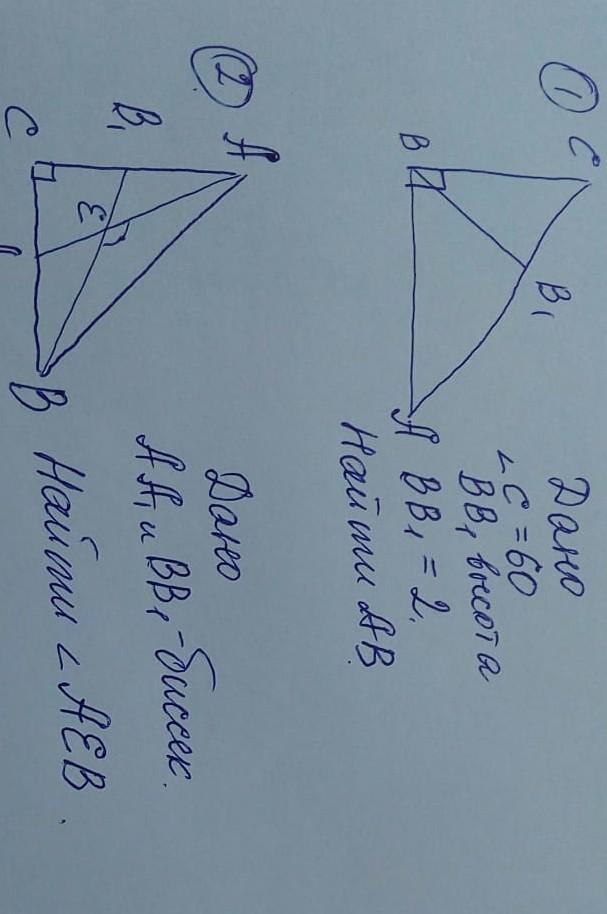 ①
C
B
B₁
A
Дано
∠C = 60
BB₁ высота
BB₁ = 2.
Найти AB.
②
A
B₁
C
E
B
Дано
AA₁ и BB₁ - биссек.
Найти ∠AEB.